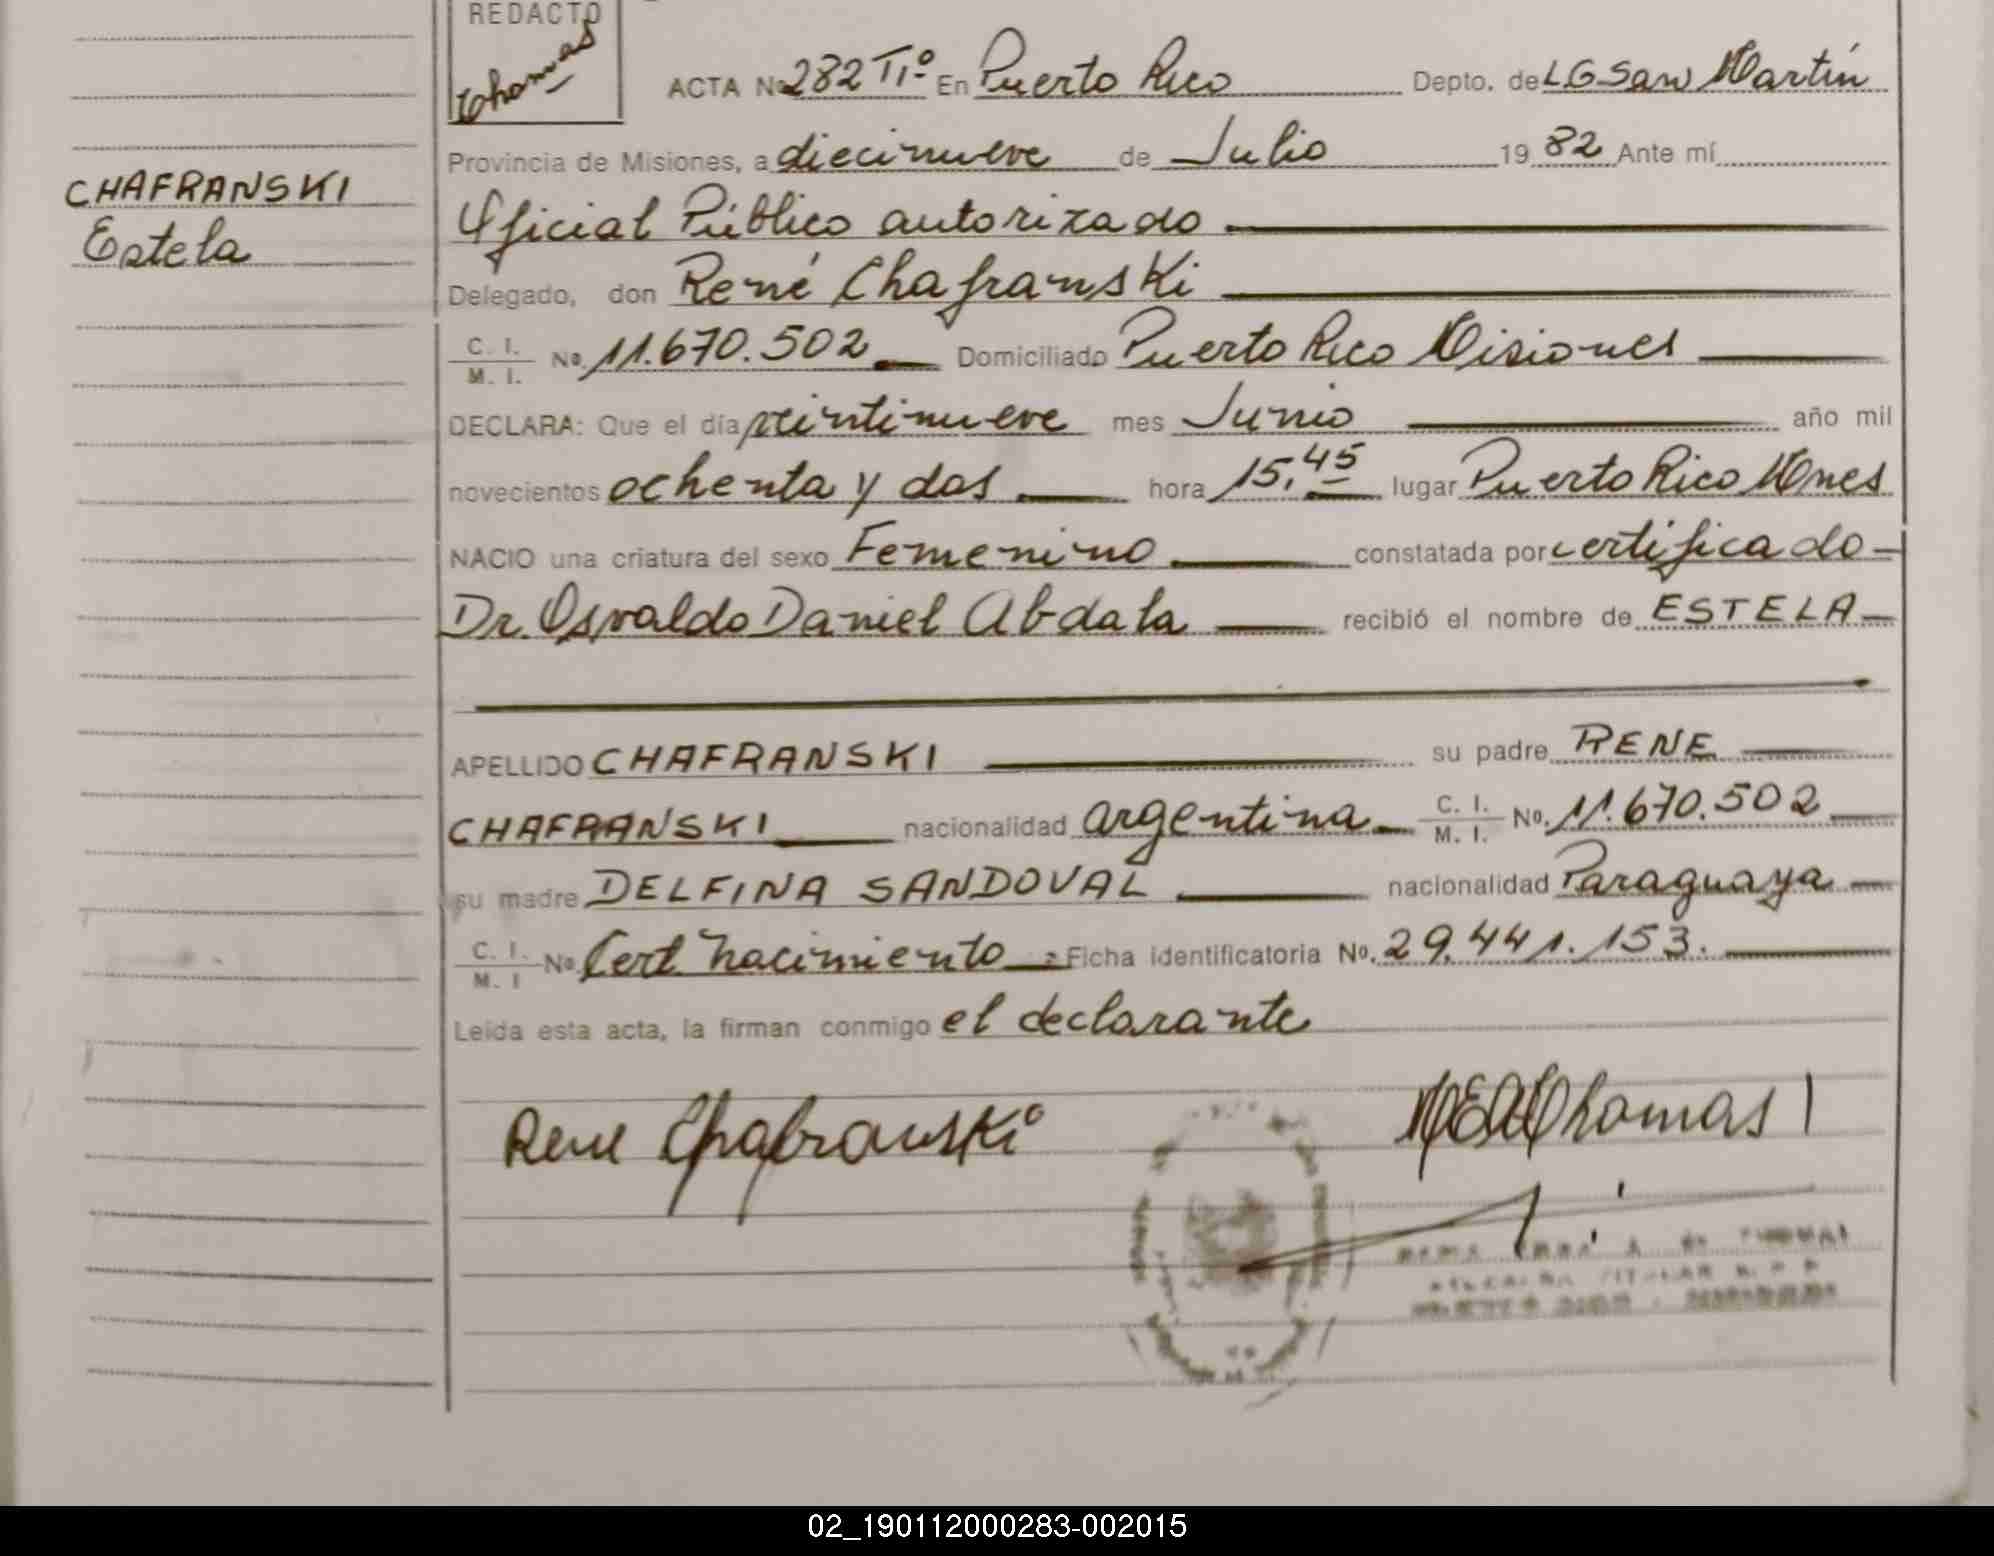 REDACTO
Thomas
CHAFRANSKI
Estela
ACTA No 282 TIº En Puerto Rico Depto. de L G San Martín
Provincia de Misiones, a diecinueve de Julio 19 82 Ante mí
Oficial Público autorizado
Delegado, don René Chafranski
C. I. M. I. No. 11.670.502 Domiciliado Puerto Rico Misiones
DECLARA: Que el día veintinueve mes Junio año mil
novecientos ochenta y dos hora 15,45 lugar Puerto Rico Mnes
NACIO una criatura del sexo Femenino constatada por certificado
Dr. Osvaldo Daniel Abdala recibió el nombre de ESTELA
APELLIDO CHAFRANSKI su padre RENE
CHAFRANSKI nacionalidad argentina C. I. M. I. No. 11.670.502
su madre DELFINA SANDOVAL nacionalidad Paraguaya
C. I. M. I No. Cert Nacimiento Ficha identificatoria No. 29.441.153.
Leida esta acta, la firman conmigo el declarante
Rene Chafranski
Thomas
02_190112000283-002015